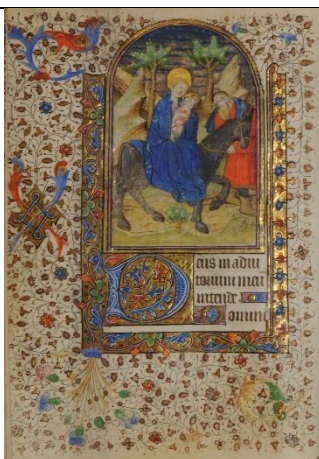 Deus in adiu
torium meū
intende
Domine